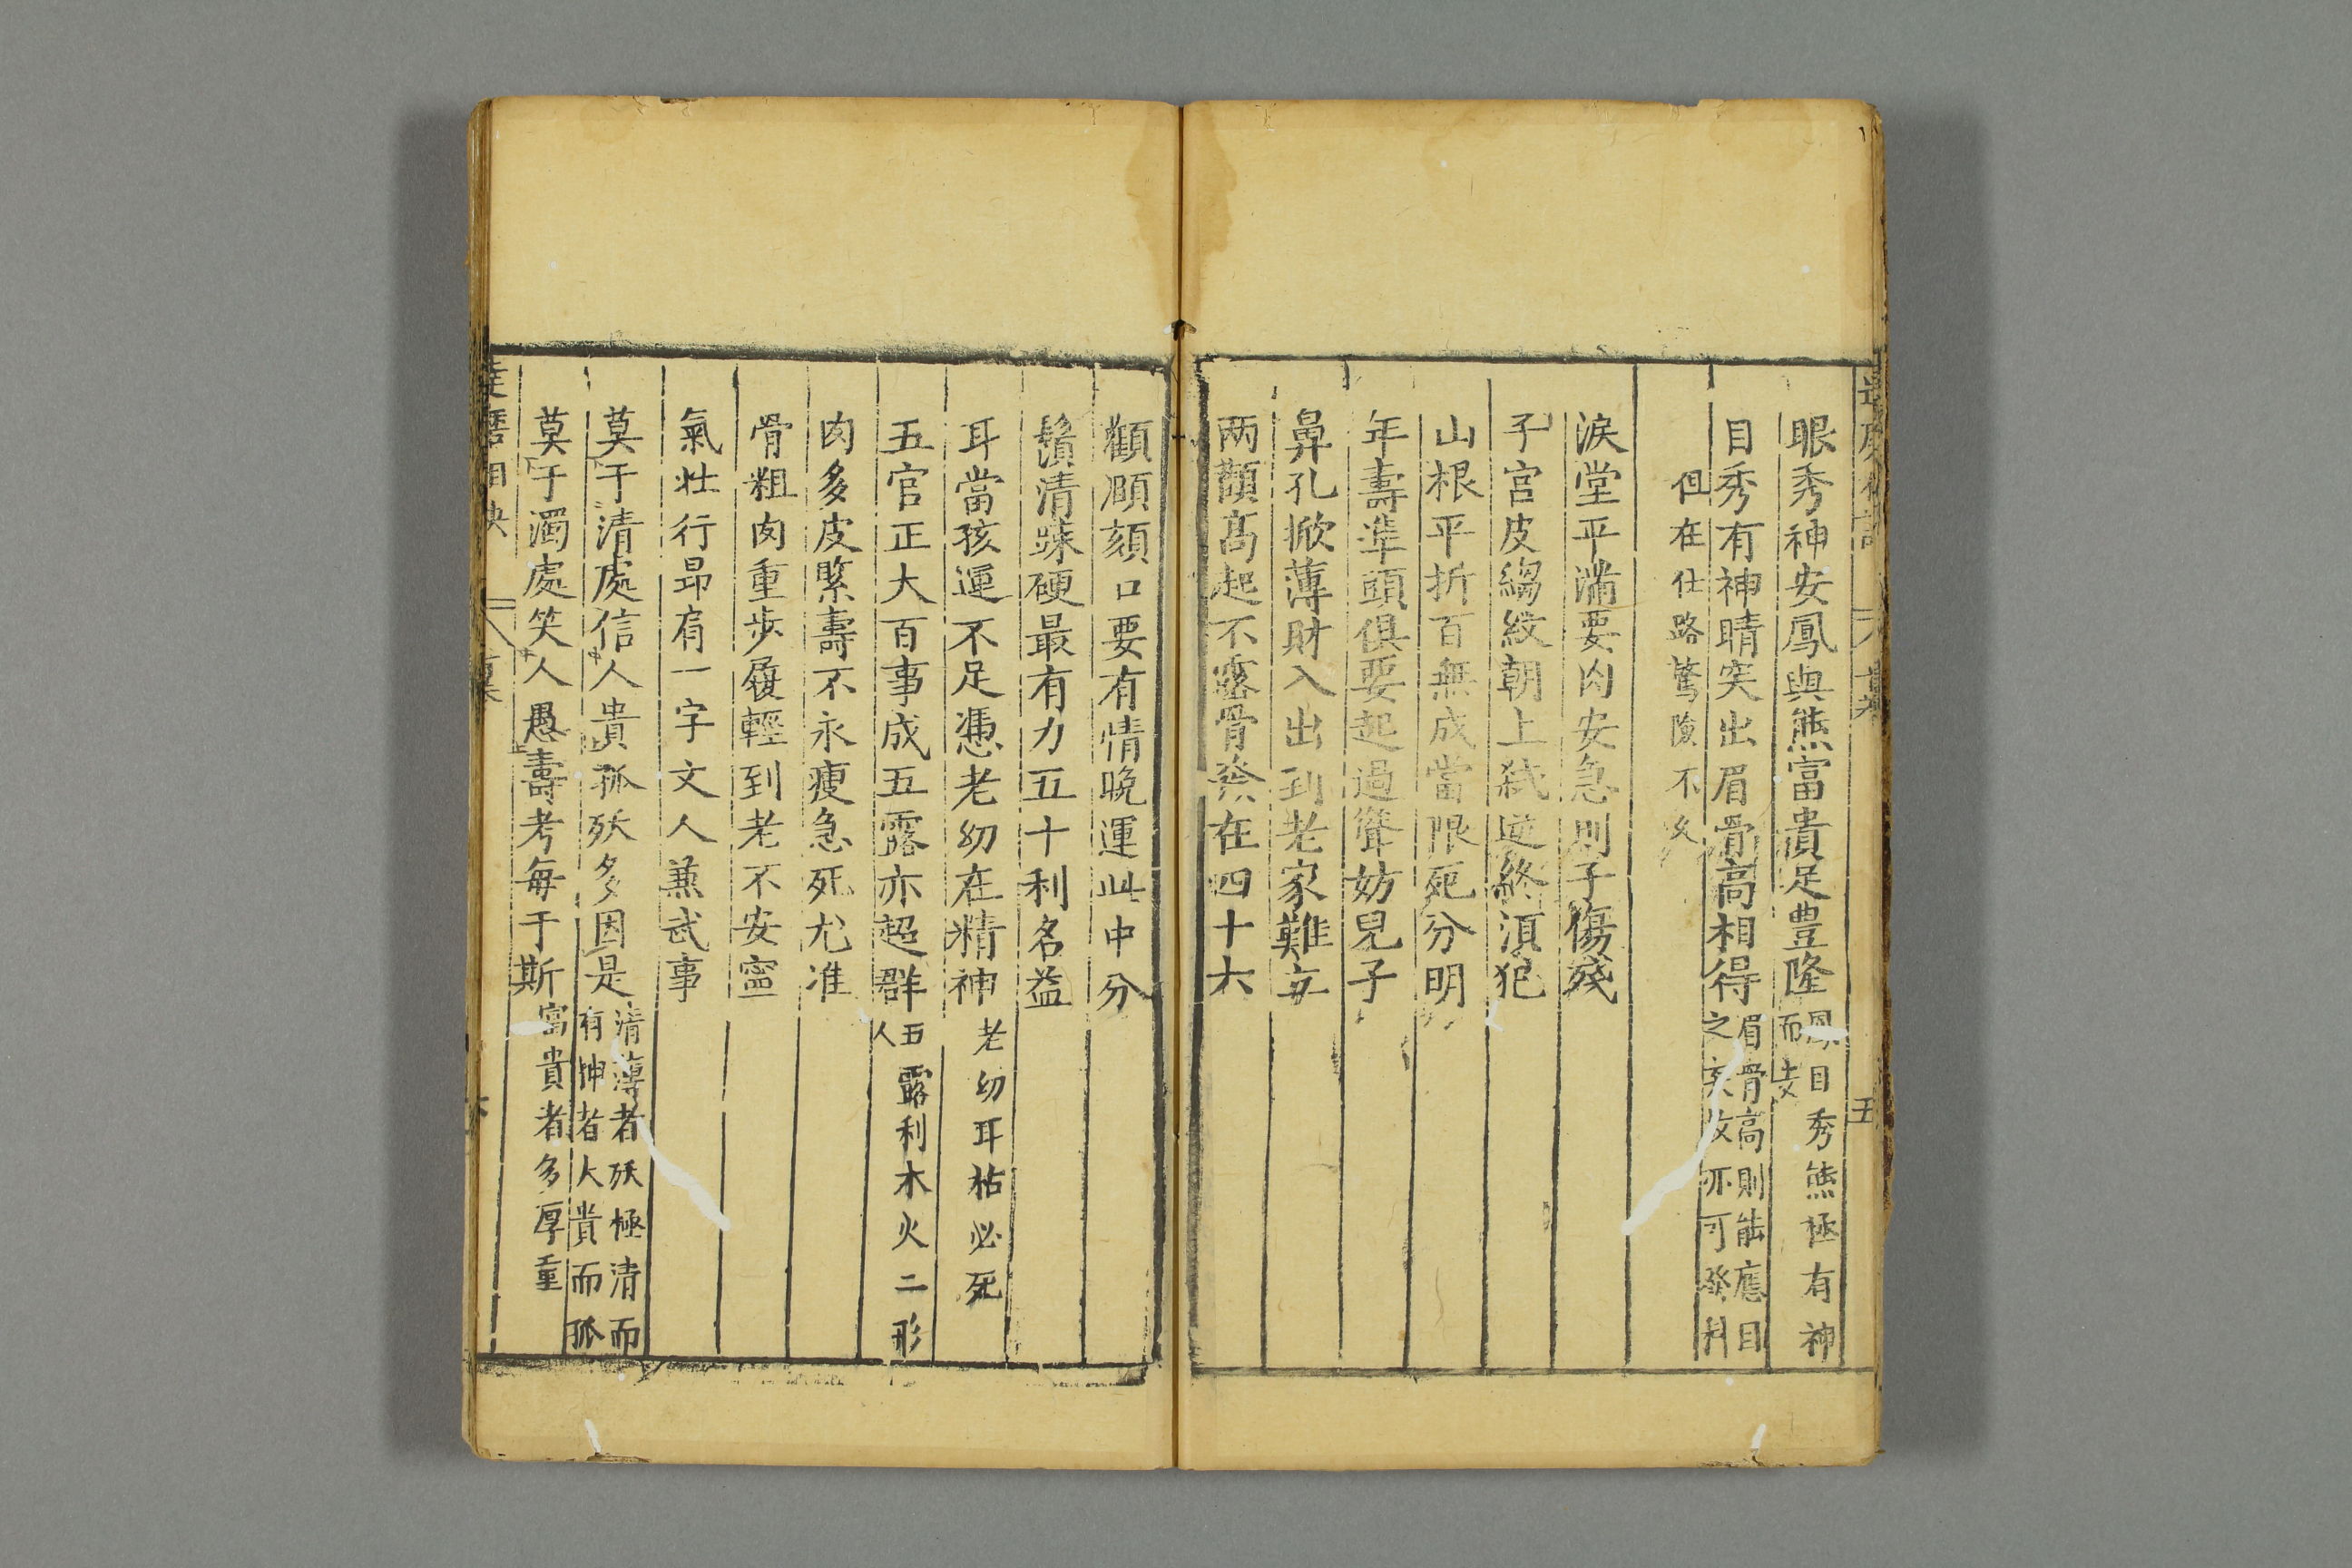 眼秀神安鳳與熊富貴足豊隆鳳目秀熊極有神
而
目秀有神晴突出眉骨高相得眉骨高則能應目
之突故亦可發科
但在仕路驚險不久
淚堂平滿要肉安急則子傷殘
子宮皮縐紋朝上弑逆終須犯
山根平折百無成當限死分明
年壽準頭俱要起過聳妨兒子
鼻孔掀薄財入出到老家難立
两顴高起不露骨發在四十六
顴頤頦口要有情晚運此中分
鬚清踈硬最有力五十利名益
耳當孩運不足憑老幼在精神老幼耳枯必死
五官正大百事成五露亦超群五露利木火二形
人
肉多皮緊壽不永瘦急死尤准
骨粗肉重步履輕到老不安寧
氣壯行昂肩一字文人兼武事
莫于清處信人貴孤殀多因是清薄者殀極清而
有神者大貴而孤
莫于濁處笑人愚壽考每于斯富貴者多厚重
達磨相決
五